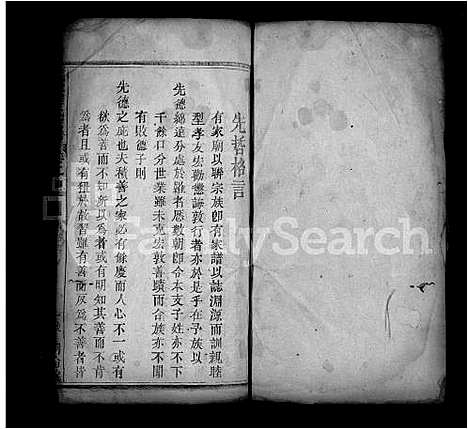 先哲格言
有家廟以聯宗族卽有家譜以誌淵源而訓親睦
型孝友宏勸懲諭敦行者亦於是乎在予族以
先德綿遠分處於雖者歷數朝卽合本支子姓亦不下
千餘口分世業雖未克宏敦善蹟而合族亦不聞
有敗德子則
先德之庇也夫積善之家必有餘慶而人心不一或有
欲為善而不知所以為者或有明知其善而不肯
為者且或有狃於故習雖有善而反為不善者皆
FamilySearch